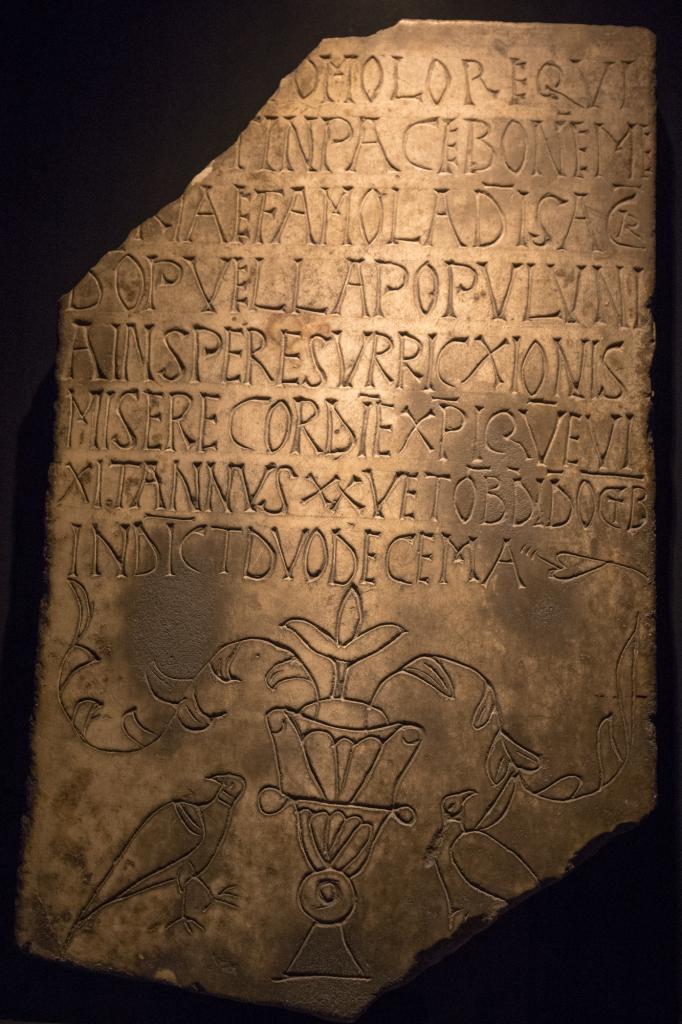 OMOLO REQVI
TINPACEBONEME
MAEFAMOLADISACR
DOPVELLAPOPVLVNI
AINSPERESVRRICXIONIS
MISERECORDIEXPIQVEVI
XITANNVSXXVETOBDIDOCTB
INDICTDVODECEMA